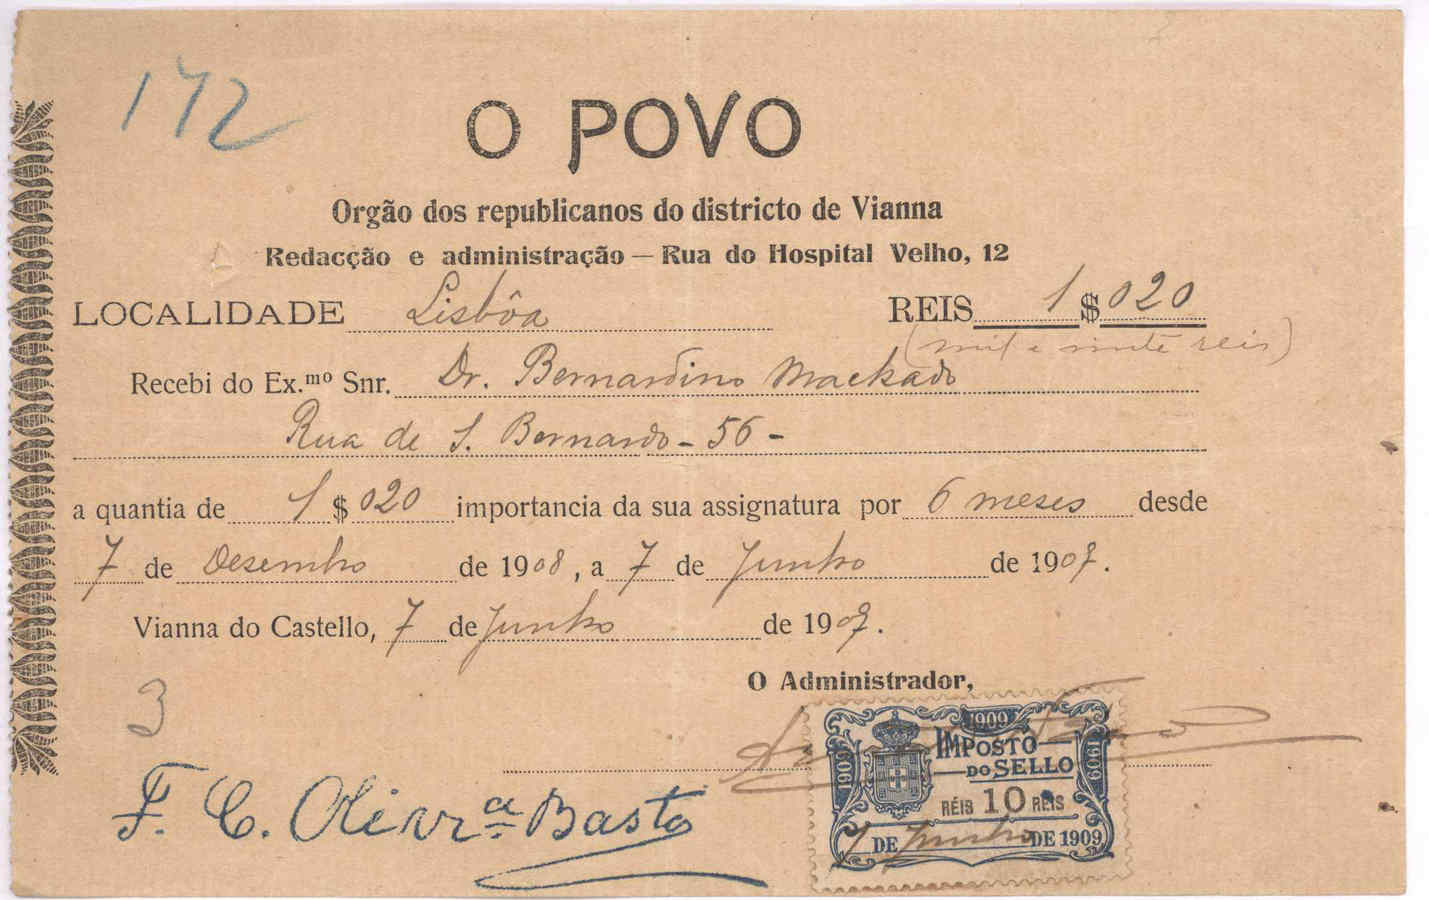 172
O POVO
Orgão dos republicanos do districto de Vianna
Redacção e administração — Rua do Hospital Velho, 12
LOCALIDADE Lisbôa REIS 1 $ 020
(mil e vinte reis)
Recebi do Ex.mo Snr. Dr. Bernardino Machado
Rua de S. Bernardo - 56 -
a quantia de 1 $ 020 importancia da sua assignatura por 6 meses desde
7 de Desembro de 1908, a 7 de Junho de 1909.
Vianna do Castello, 7 de Junho de 1909.
O Administrador,
3
1909
1909 IMPOSTO 1909
DO SELLO
RÉIS 10 REIS
7 DE Junho DE 1909
F. C. Olivr.ª Basto